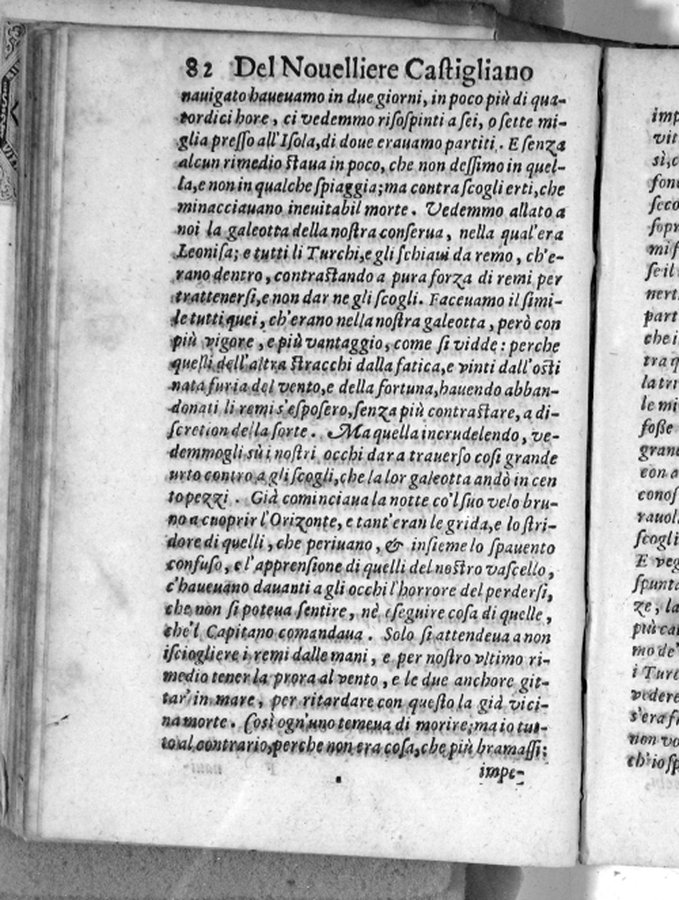 82 Del Nouelliere Caſtigliano
nauigato haueuamo in due giorni, in poco più di qua-
tordici hore, ci vedemmo riſoſpinti a ſei, o ſette mi-
glia preſſo all'Iſola, di doue erauamo partiti. E ſenza
alcun rimedio ſtaua in poco, che non deſſimo in quel-
la, e non in qualche ſpiaggia; ma contra ſcogli erti, che
minacciauano ineuitabil morte. Vedemmo allato a
noi la galeotta della noſtra conſerua, nella qual'era
Leoniſa; e tutti li Turchi, e gli ſchiaui da remo, ch'e-
rano dentro, contraſtando a pura forza di remi per
trattenerſi, e non dar ne gli ſcogli. Faceuamo il ſimi-
le tutti quei, ch'erano nella noſtra galeotta, però con
più vigore, e più vantaggio, come ſi vidde: perche
quelli dell'altra ſtracchi dalla fatica, e vinti dall'oſti
nata furia del vento, e della fortuna, hauendo abban-
donati li remi s'eſpoſero, ſenza più contraſtare, a di-
ſcretion della ſorte. Ma quella incrudelendo, ve-
demmogli sù i noſtri occhi dar a trauerſo coſi grande
urto contro a gli ſcogli, che la lor galeotta andò in cen
to pezzi. Già cominciaua la notte co'l ſuo velo bru-
no a cuoprir l'Orizonte, e tant'eran le grida, e lo ſtri-
dore di quelli, che periuano, & inſieme lo ſpauento
confuſo, e l'apprenſione di quelli del noſtro vaſcello,
c'haueuano dauanti a gli occhi l'horrore del perderſi,
che non ſi poteua ſentire, nè eſeguire coſa di quelle,
che'l Capitano comandaua. Solo ſi attendeua a non
iſciogliere i remi dalle mani, e per noſtro vltimo ri-
medio tener la prora al vento, e le due anchore git-
tar' in mare, per ritardare con queſto la già vici-
na morte. Coſi ogn'uno temeua di morire; ma io tut-
to al contrario, perche non era coſa, che più bramaſſi;
impe-
imp
vit
sì, c
fon
ſeco
ſopr
mi f
ſe il
nert
part
che i
tra q
la tr
le mi
foſſe
gran
con a
conoſ
rauol
ſcogli
E veg
ſpunt
ze, la
più ca
mo de'
i Turc
vedere
s'era f
non vo
ch'io ſp